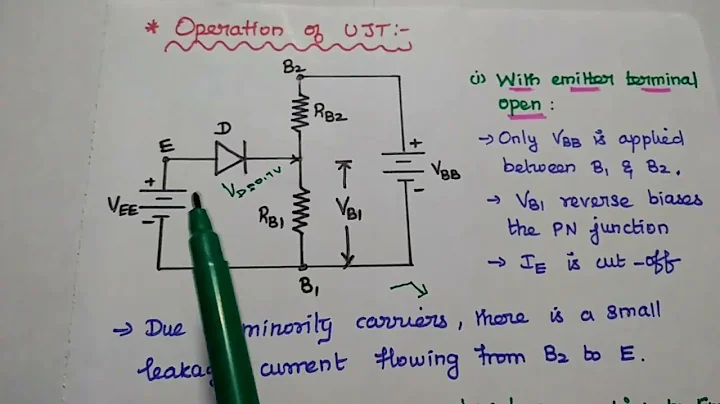 * Operation of UJT:-
B2
RB2
E
D
+
VEE
-
VD=0.7V
RB1
VB1
+
VBB
-
B1
i) With emitter terminal
open :
→ Only VBB is applied
between B1 & B2.
→ VB1 reverse biases
the PN junction
→ IE is cut-off
→ Due minority carriers, there is a small
current flowing from B2 to E.